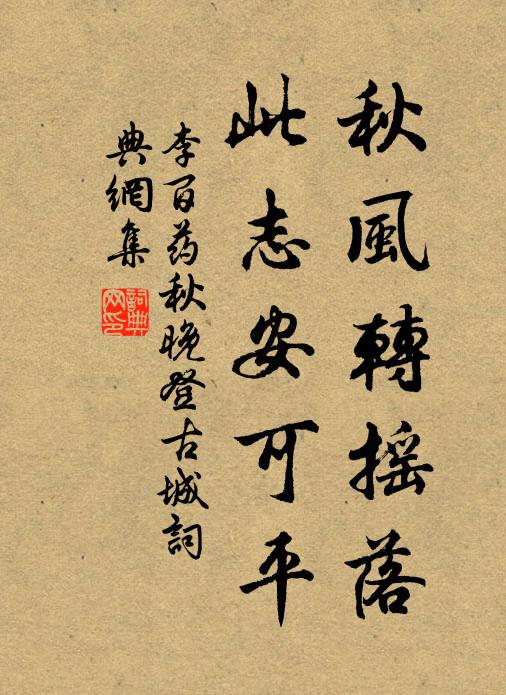 秋風轉摇落
此志安可平
李百药秋晚登古城詞
典網集
詞典
网印